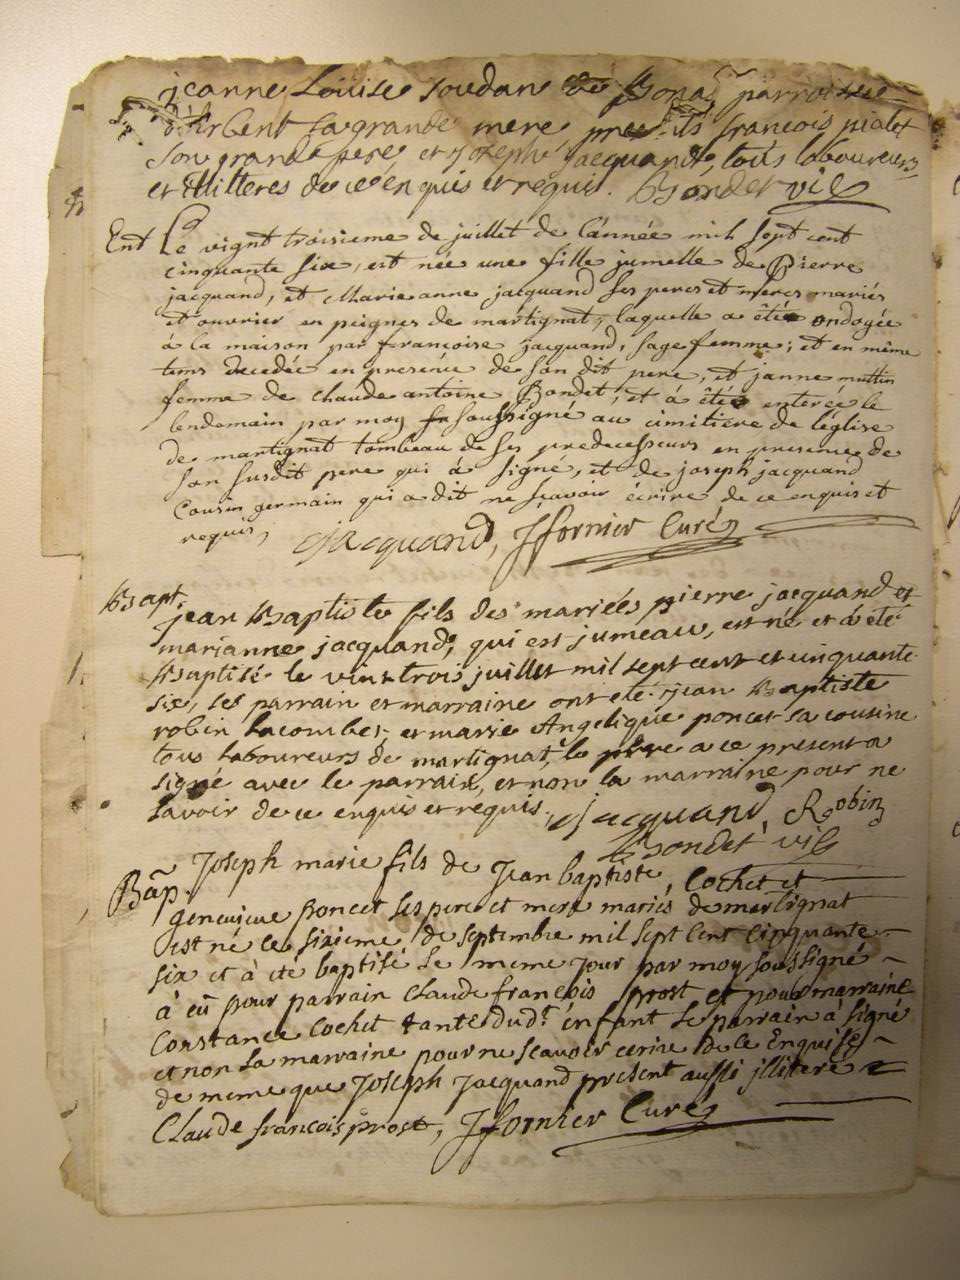 jeanne Louise soudan de Bona, parroisse
d'Arbent sa grande mere presents françois pialet
son grand pere, et joseph jacquand, tous laboureurs
et illitteres de ce enquis et requis. Bondet vic
Ent Le vignt troisieme de juillet de l'année mil sept cent
cinquante six, est née une fille jumelle de Pierre
jacquand, et Marie anne jacquand ses peres et meres mariés
et ouvrier en peignes de martignat, laquelle a étée ondoyée
à la maison par françoise jacquand, sage femme; et en même
tems decedée en presence de son dit pere, et janne muttin
femme de claude antoine Bondet, et à étée enterée le
lendemain par moy soussigné au cimitiere de l'église
de martignat tombeau de ses predecesseurs en presence de
son susdit pere qui a signé, et de joseph jacquand
Cousin germain qui a dit ne sçavoir écrire de ce enquis et
requis, Jacquand, Jfornier Curé
Bapt. jean Baptiste fils des mariées pierre jacquand et
marianne jacquand, qui est jumeau, est né et a été
Baptisé le vint trois juillet mil sept cent et cinquante
six, ses parrain et marraine ont été jean Baptiste
robin lacombe, et marie Angelique poncet sa cousine
tous laboureurs de martignat, le pere a ce present a
signé avec le parrain, et non la marraine pour ne
savoir de ce enquis et requis. jacquand, Robin
Bondet vic
Bap. Joseph marie fils de Jean baptiste Cochet et
Genevieve Poncet ses pere et mere mariés de martignat
est né ce sixieme de septembre mil sept cent cinquante
six et à été baptisé le meme jour par moy soussigné
à eü pour parrain Claude françois prost et pour marraine
Constance Cochet tante dud.t enfant le parrain a signé
et non la marraine pour ne sçavoir ecrire de ce Enquise
de meme que Joseph Jacquand present aussi illiteré
Claude françois prost, Jfornier Curé